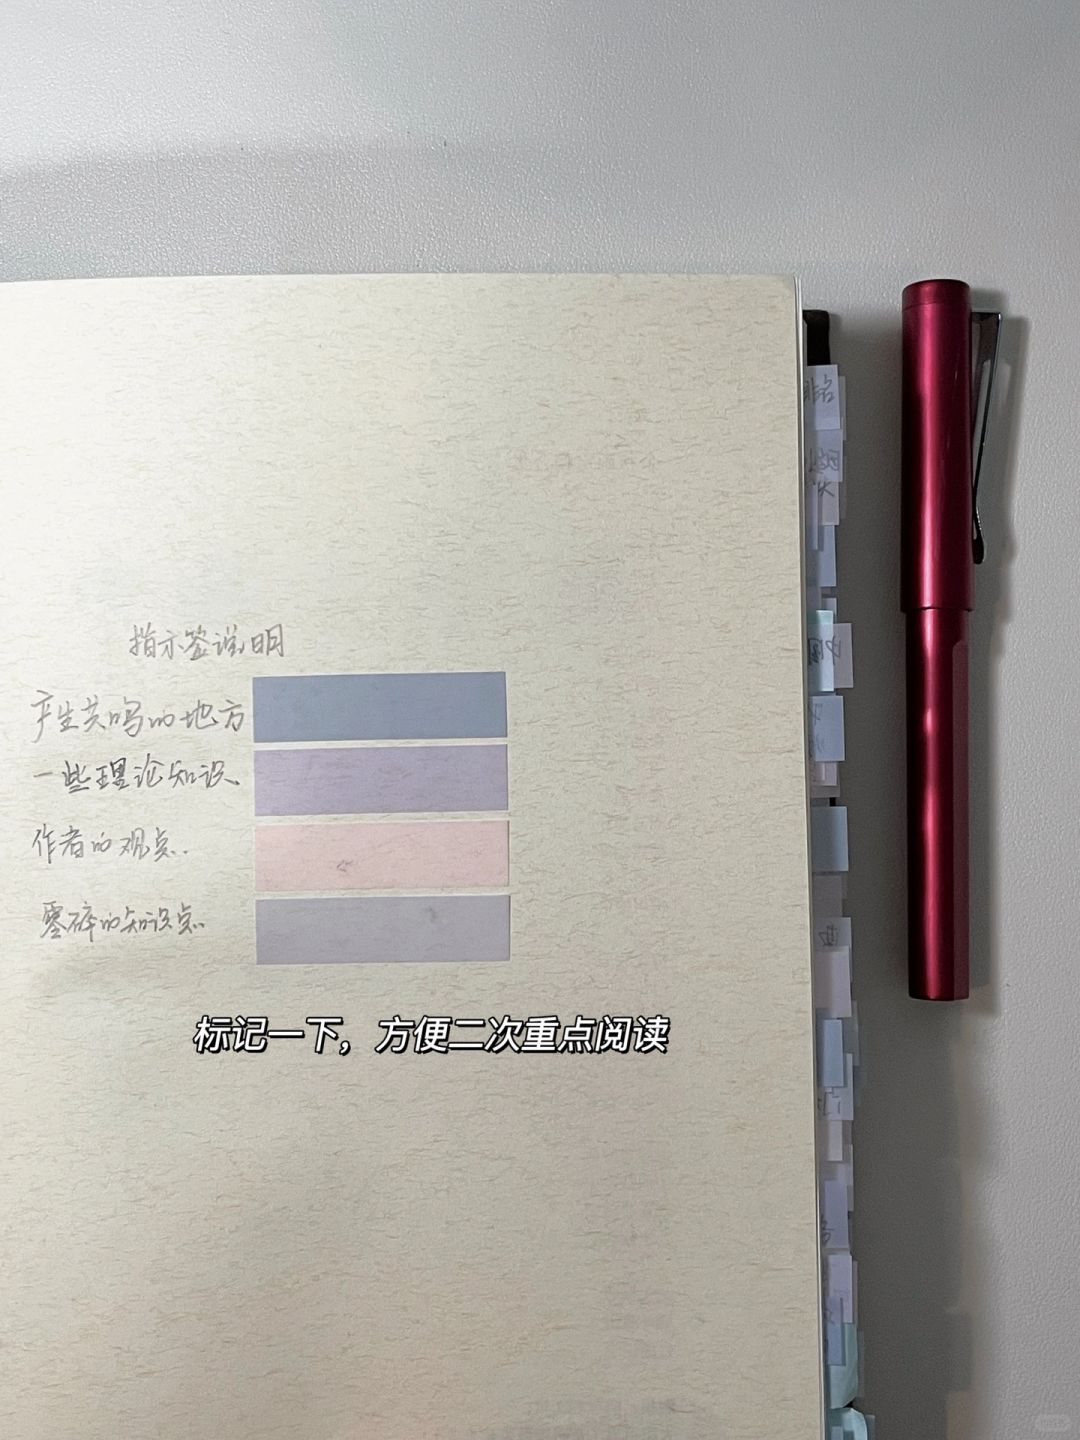 指示签说明
产生共鸣的地方
一些理论知识
作者的观点.
零碎的知识点
标记一下，方便二次重点阅读
中国